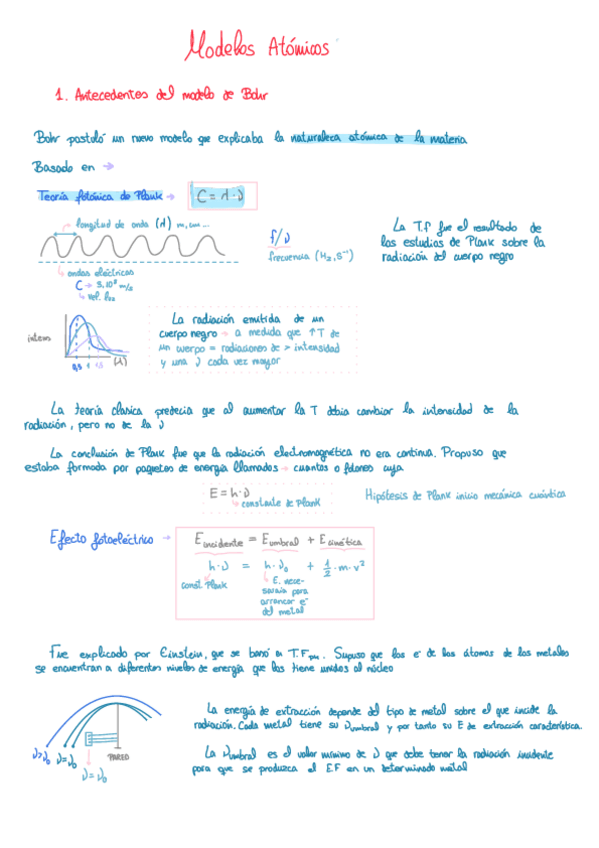 Modelos Atómicos
1. Antecedentes del modelo de Bohr
Bohr postuló un nuevo modelo que explicaba la naturaleza atómica de la materia
Basado en →
Teoría fotónica de Plank → C = λ · ν
longitud de onda (λ) m, cm...
ondas eléctricas
C → 3.10⁸ m/s
vel. luz
f/ν
frecuencia (Hz, s⁻¹)
La T.f fue el resultado de
los estudios de Plank sobre la
radiación del cuerpo negro
intens
0,5 1 1,5 (λ)
La radiación emitida de un
cuerpo negro → a medida que ↑T de
un cuerpo = radiaciones de > intensidad
y una ν cada vez mayor
La teoría clásica predecía que al aumentar la T debía cambiar la intensidad de la
radiación, pero no de la ν
La conclusión de Plank fue que la radiación electromagnética no era continua. Propuso que
estaba formada por paquetes de energía llamados → cuantos o fotones cuya
E = h · ν
constante de Plank
Hipótesis de Plank inicio mecánica cuántica
Efecto fotoeléctrico →
E incidente = E umbral + E cinética
h · ν = h · ν₀ + 1/2 · m · v²
const. Plank
E. nece-
saria para
arrancar e⁻
del metal
Fue explicado por Einstein, que se basó en T.F. Supuso que los e⁻ de los átomos de los metales
se encuentran a diferentes niveles de energía que los tiene unidos al núcleo
ν>ν₀ ν=ν₀ PARED
ν=ν₀
La energía de extracción depende del tipo de metal sobre el que incide la
radiación. Cada metal tiene su ν umbral y por tanto su E de extracción característica.
La ν umbral es el valor mínimo de ν que debe tener la radiación incidente
para que se produzca el E.F en un determinado metal